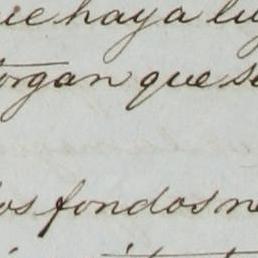 ue haya lu
organ que se
os fondos ne